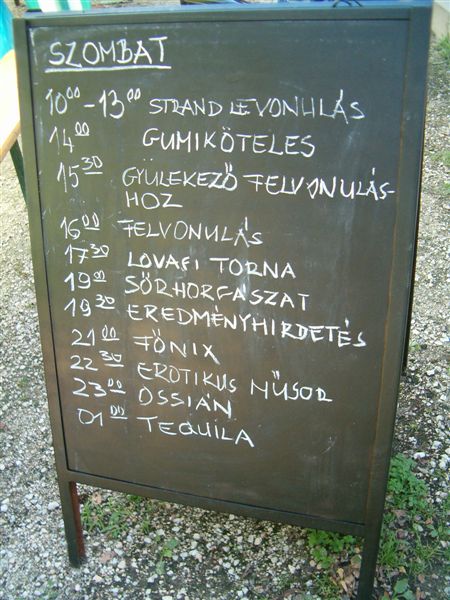 SZOMBAT
1000-1300 STRAND LEVONULÁS
1400 GUMIKÖTELES
1530 GYÜLEKEZŐ FELVONULÁS-
HOZ
1600 FELVONULÁS
1730 LOVAGI TORNA
1900 SÖRHORGÁSZAT
1930 EREDMÉNYHIRDETÉS
2100 FŐNIX
2230 EROTIKUS MŰSOR
2300 OSSIÁN
0100 TEQUILA